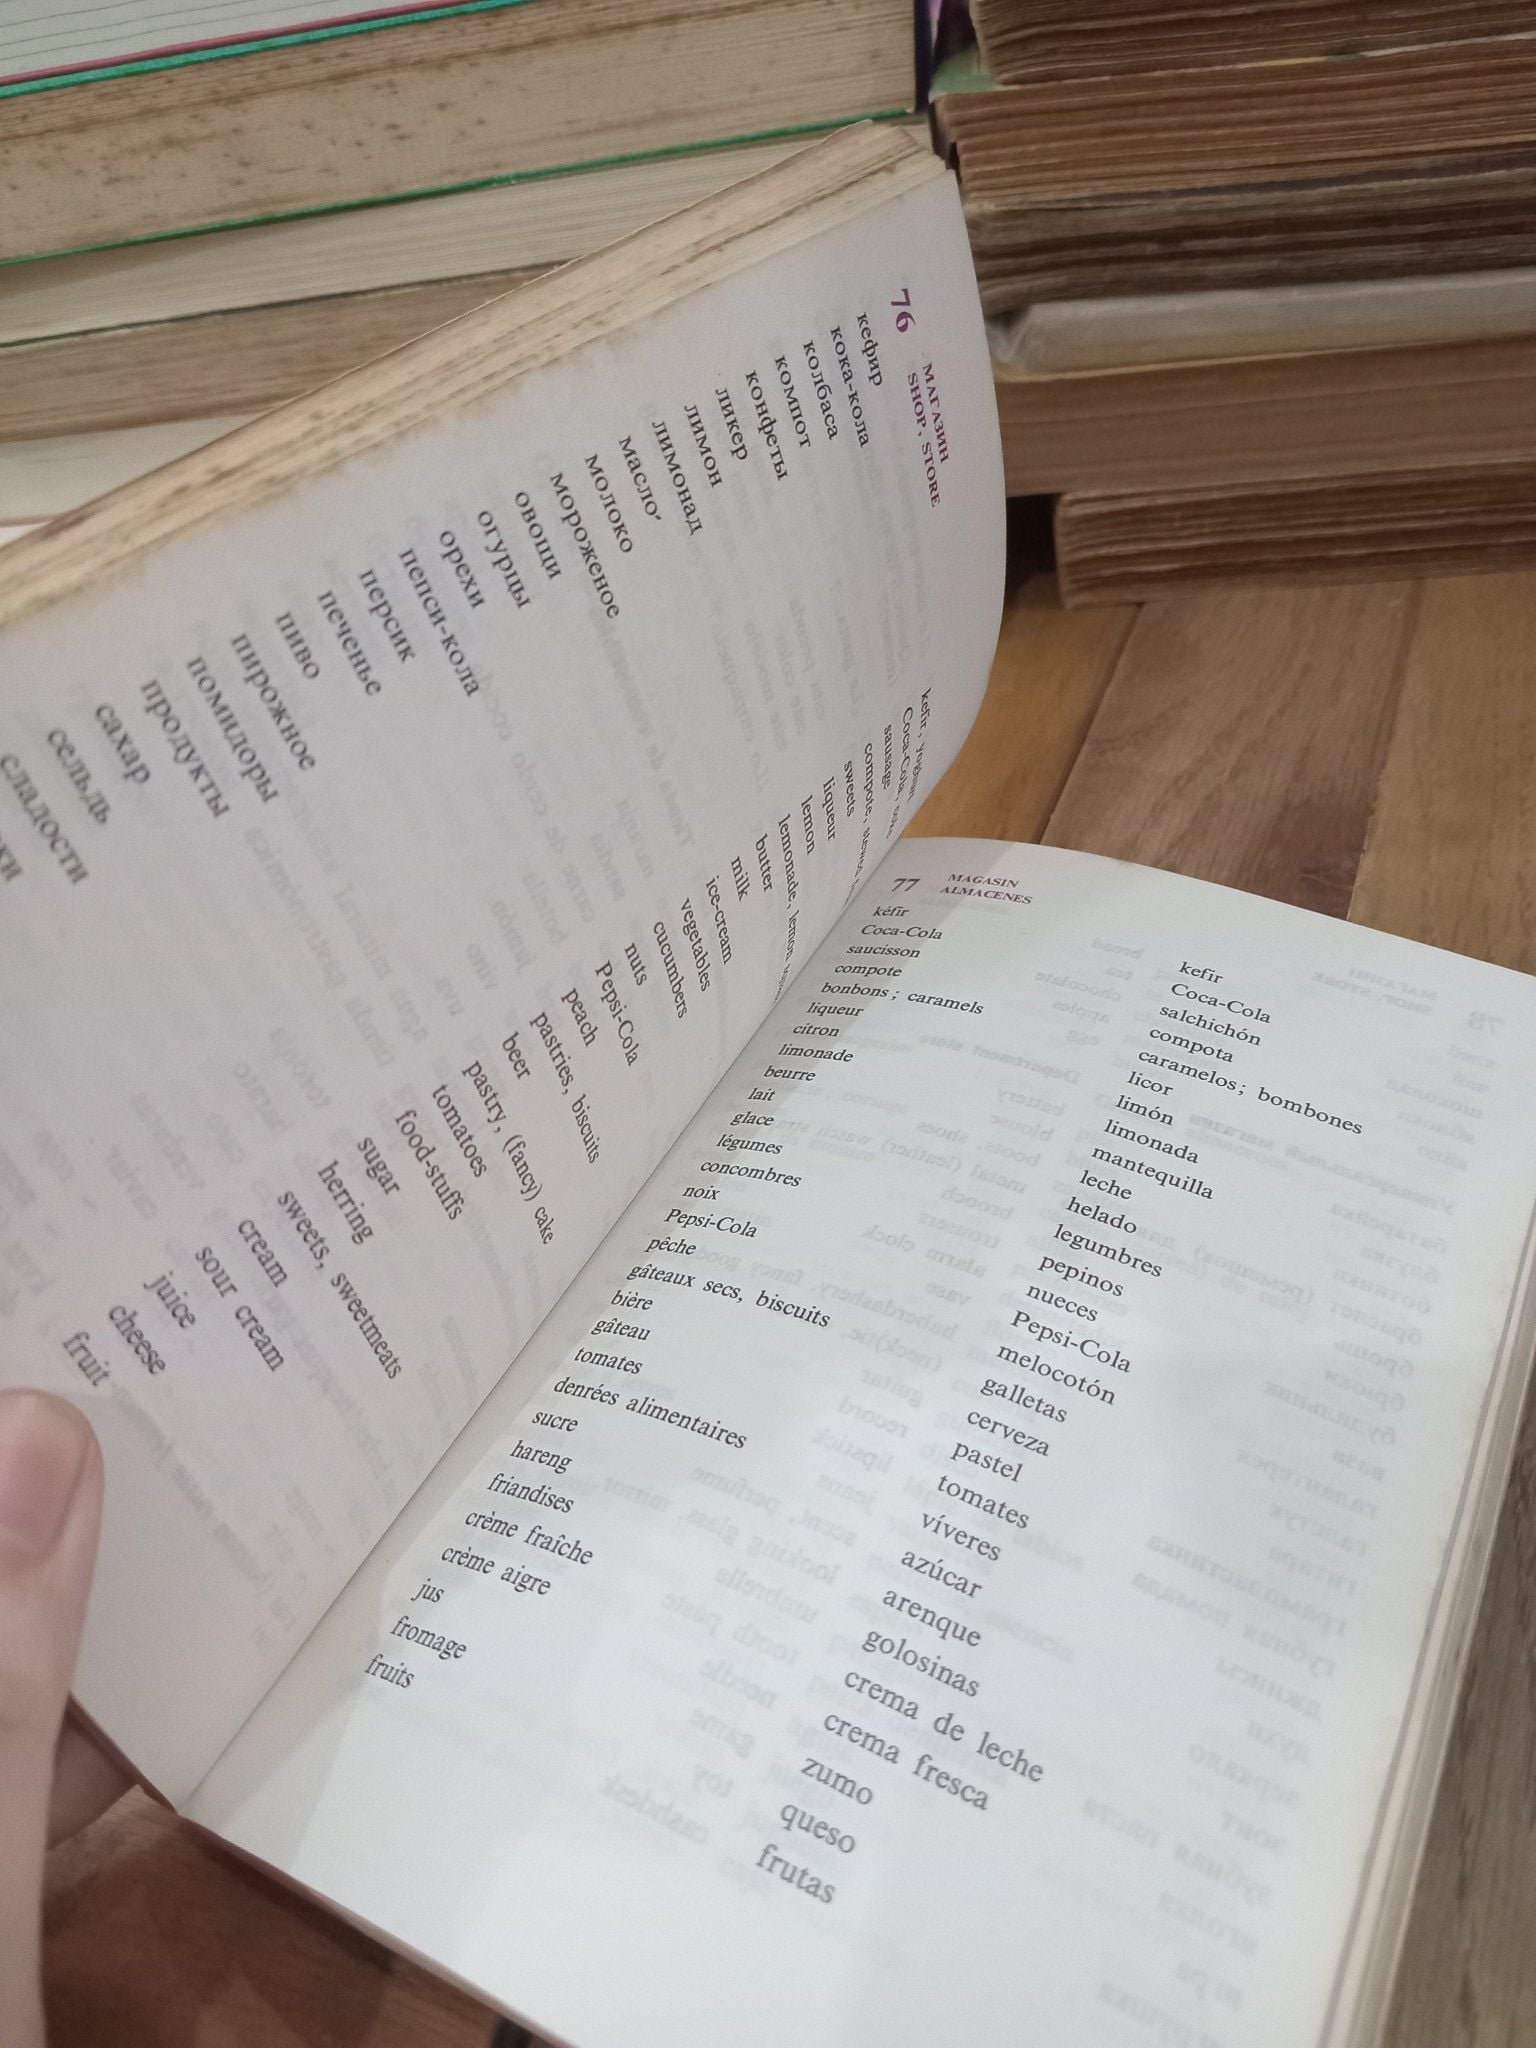 76
МАГАЗИН
SHOP, STORE
кефир
кока-кола
колбаса
компот
конфеты
ликер
лимон
лимонад
масло
молоко
мороженое
овощи
огурцы
орехи
пепси-кола
персик
печенье
пиво
пирожное
помидоры
продукты
сахар
сельдь
сладости
kefir,
Coca-Cola,
sausage
compote,
sweets
liqueur
lemon
lemonade, lemon
butter
milk
ice-cream
vegetables
cucumbers
nuts
Pepsi-Cola
peach
pastries, biscuits
beer
pastry, (fancy) cake
tomatoes
food-stuffs
sugar
herring
sweets, sweetmeats
cream
sour cream
juice
cheese
fruit
77
MAGASIN
ALMACENES
kéfir
Coca-Cola
saucisson
compote
bonbons; caramels
liqueur
citron
limonade
beurre
lait
glace
légumes
concombres
noix
Pepsi-Cola
pêche
gâteaux secs, biscuits
bière
gâteau
tomates
denrées alimentaires
sucre
hareng
friandises
crème fraîche
crème aigre
jus
fromage
fruits
kefir
Coca-Cola
salchichón
compota
caramelos; bombones
licor
limón
limonada
mantequilla
leche
helado
legumbres
pepinos
nueces
Pepsi-Cola
melocotón
galletas
cerveza
pastel
tomates
víveres
azúcar
arenque
golosinas
crema de leche
crema fresca
zumo
queso
frutas